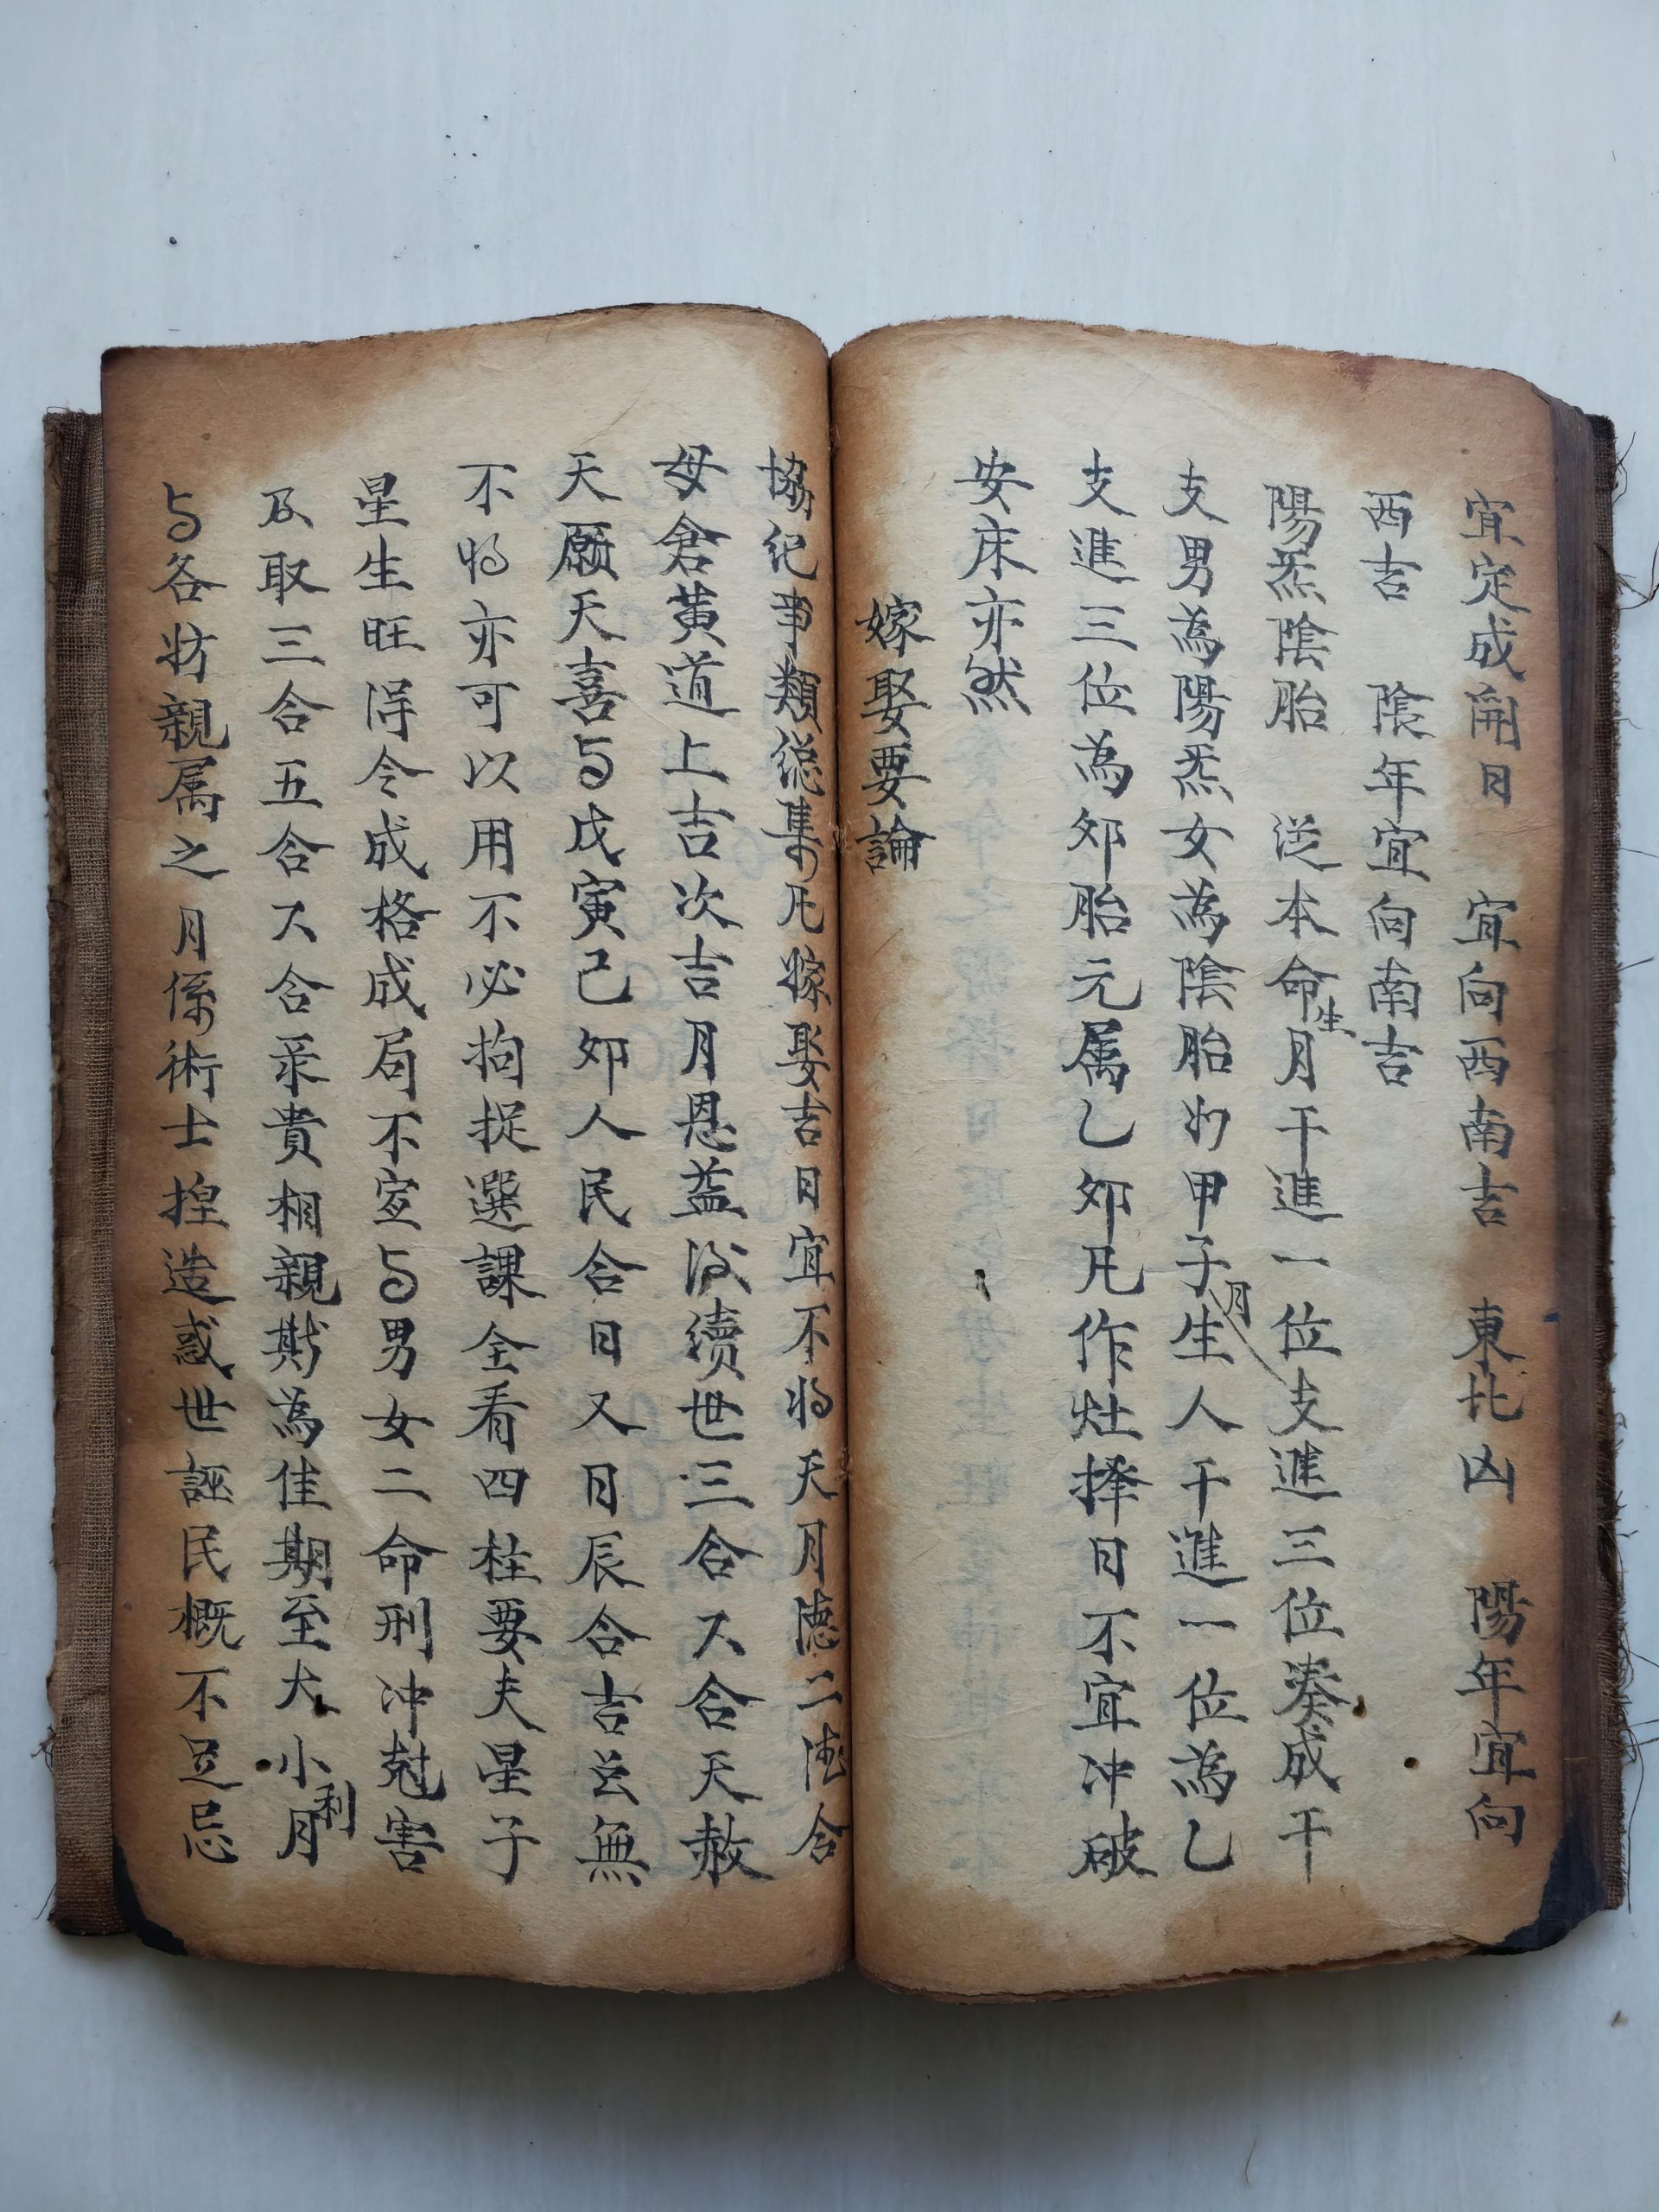 宜定成開日　宜向西南吉　東北凶　陽年宜向
西吉　陰年宜向南吉
陽炁陰胎　從本命生月干進一位支進三位湊成干
支男為陽炁女為陰胎如甲子月生人干進一位為乙
支進三位為夘胎元属乙夘凡作灶择日不宜冲破
安床亦然
嫁娶要論
協紀事類總集凡嫁娶吉日宜不將天月德二德合
母倉黄道上吉次吉月恩益後續世三合六合天赦
天願天喜与戊寅己夘人民合日又日辰合吉並無
不將亦可以用不必拘捉選課全看四柱要夫星子
星生旺得令成格成局不宜与男女二命刑冲尅害
及取三合五合六合采貴相親斯為佳期至大小利月
与各妨親属之月係術士揑造惑世誣民概不足忌